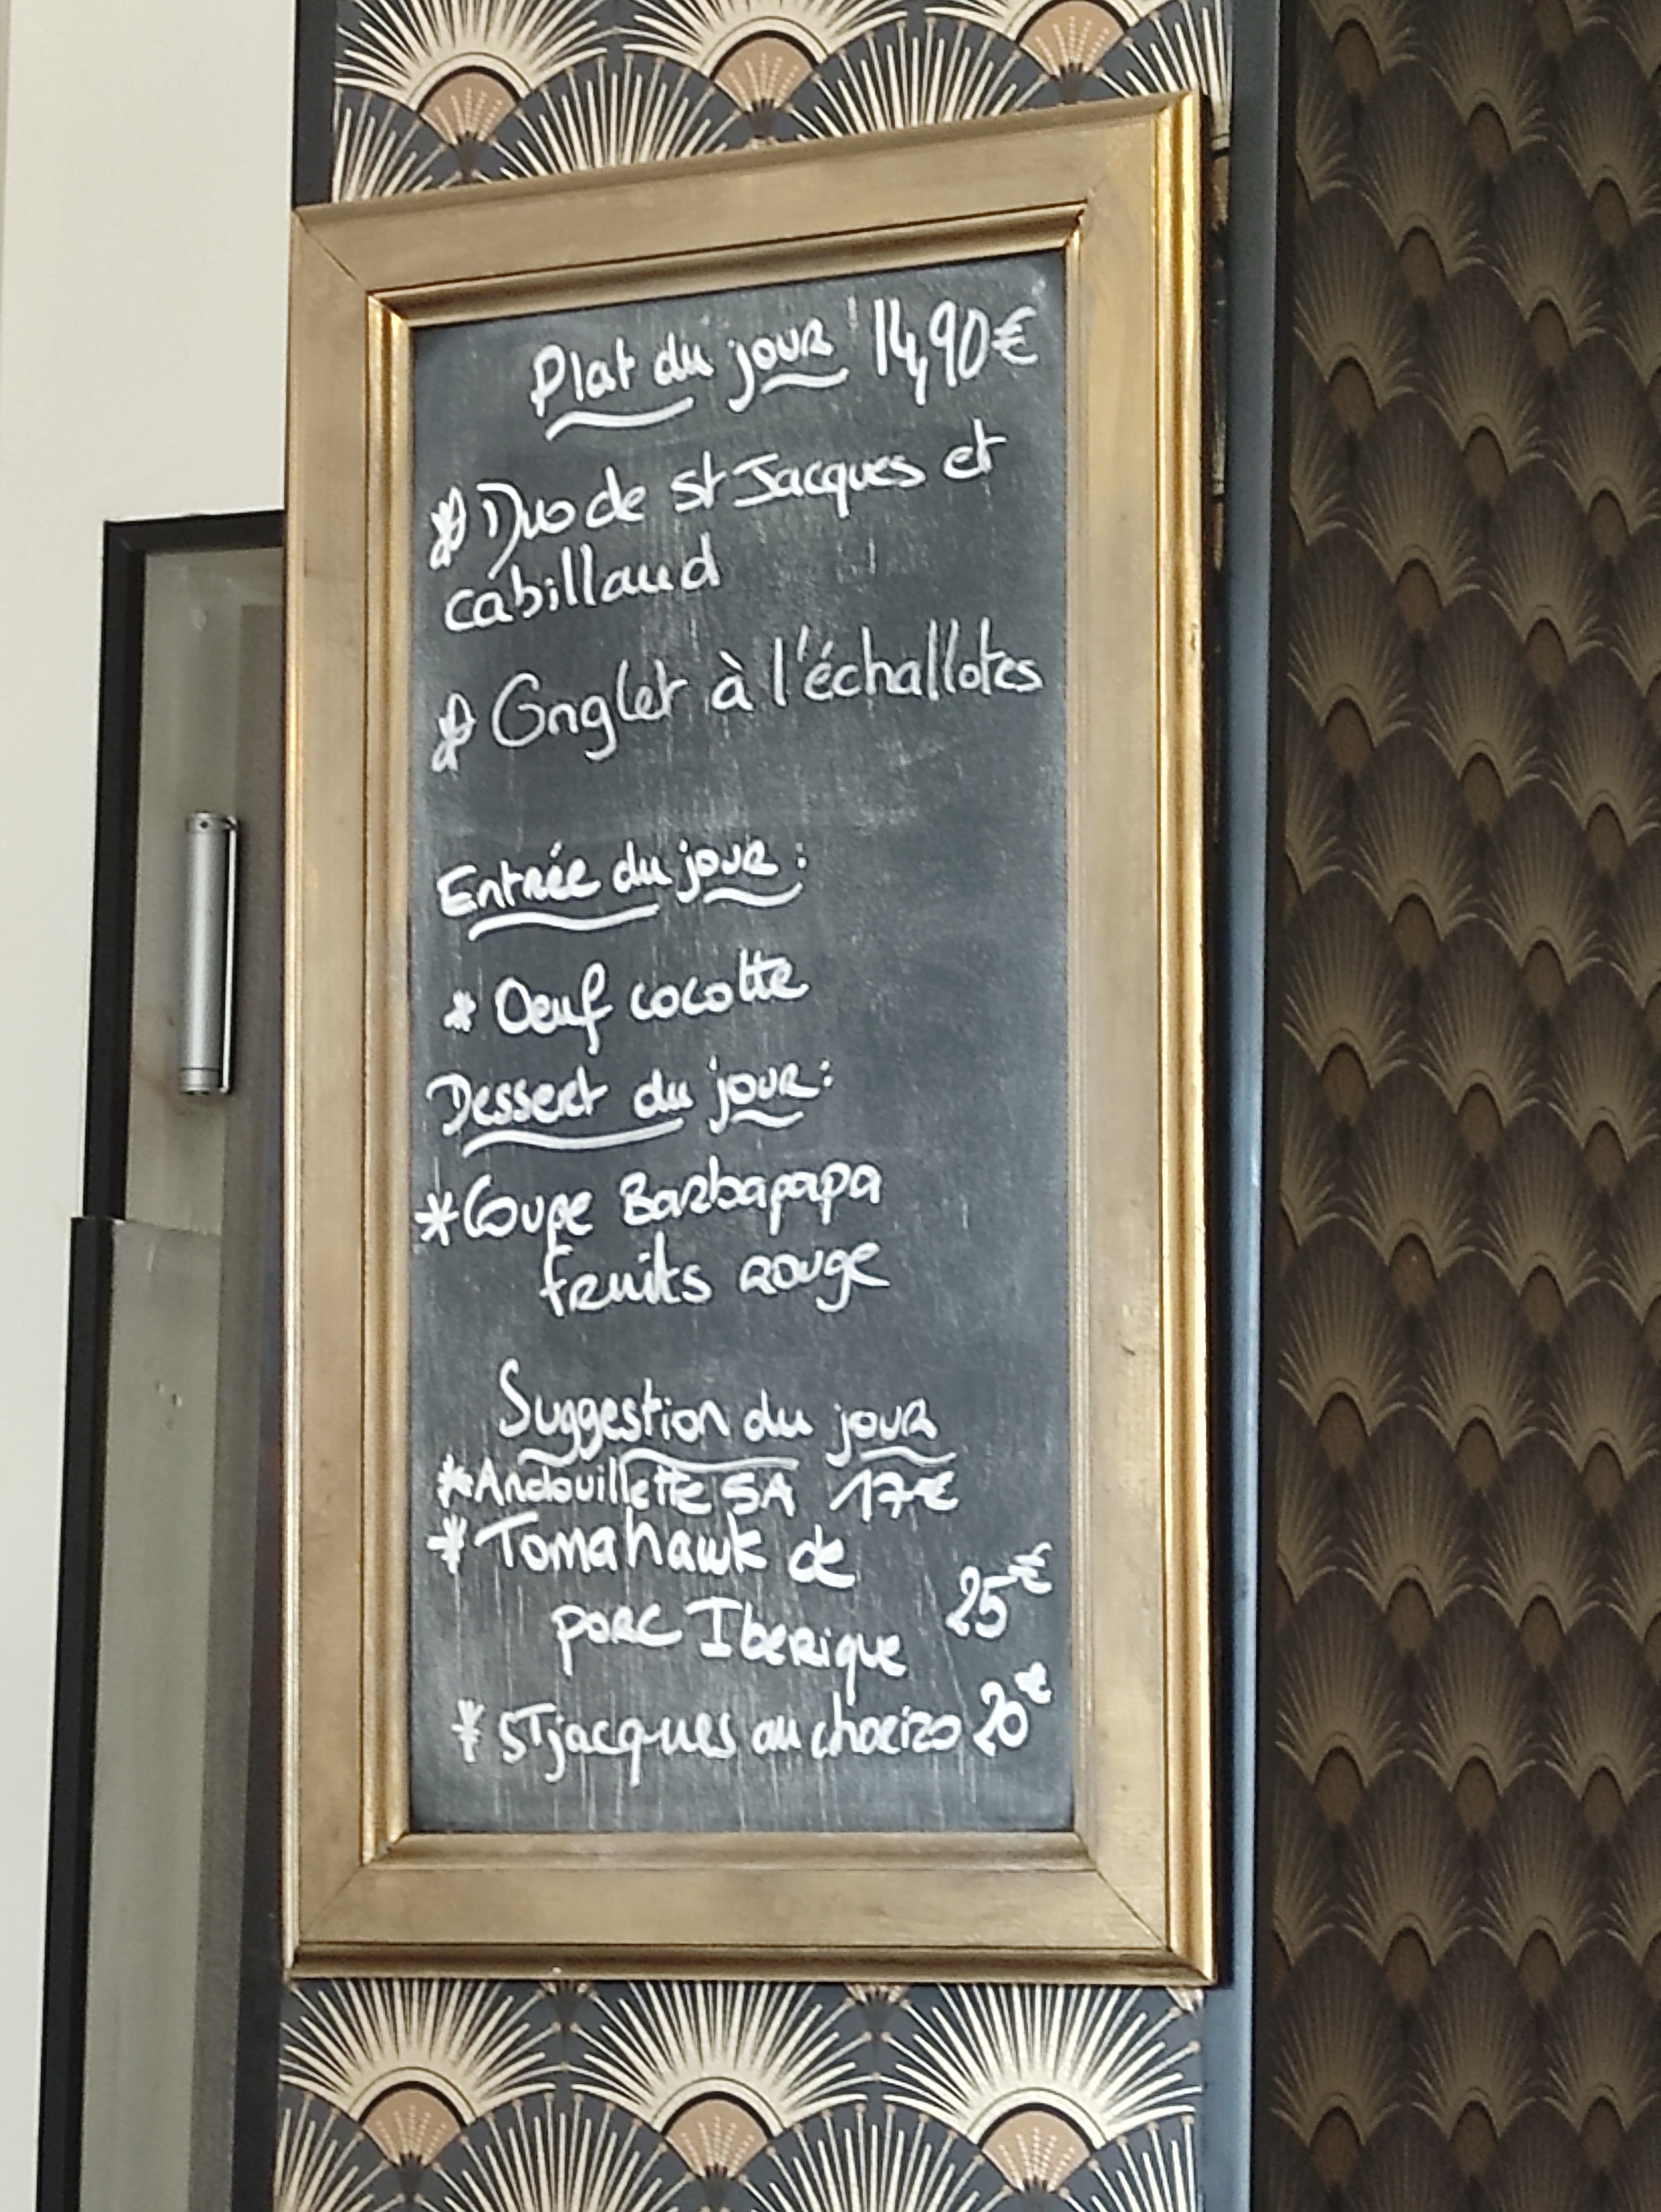 Plat du jour 14,90€
* Duo de st Jacques et
cabillaud
* Onglet à l'échallotes
Entrée du jour :
* Oeuf cocotte
Dessert du jour :
* Coupe Barbapapa
fruits rouge
Suggestion du jour
* Andouillette 5A 17€
* Tomahawk de
porc Iberique 25€
* ST jacques au chorizo 20€